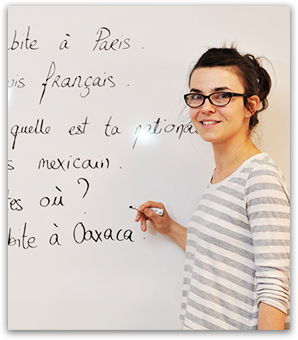 bite à Paris.
is français.
quelle est ta nationa
s mexicain.
es où?
bite à Oaxaca.